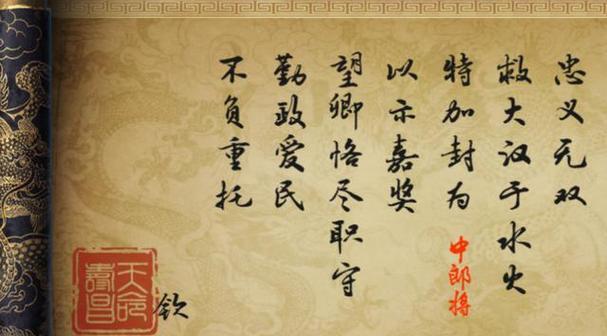 忠义无双
救大汉于水火
特加封为
中郎将
以示嘉奖
望卿恪尽职守
勤政爱民
不负重托
钦
天命
壽昌